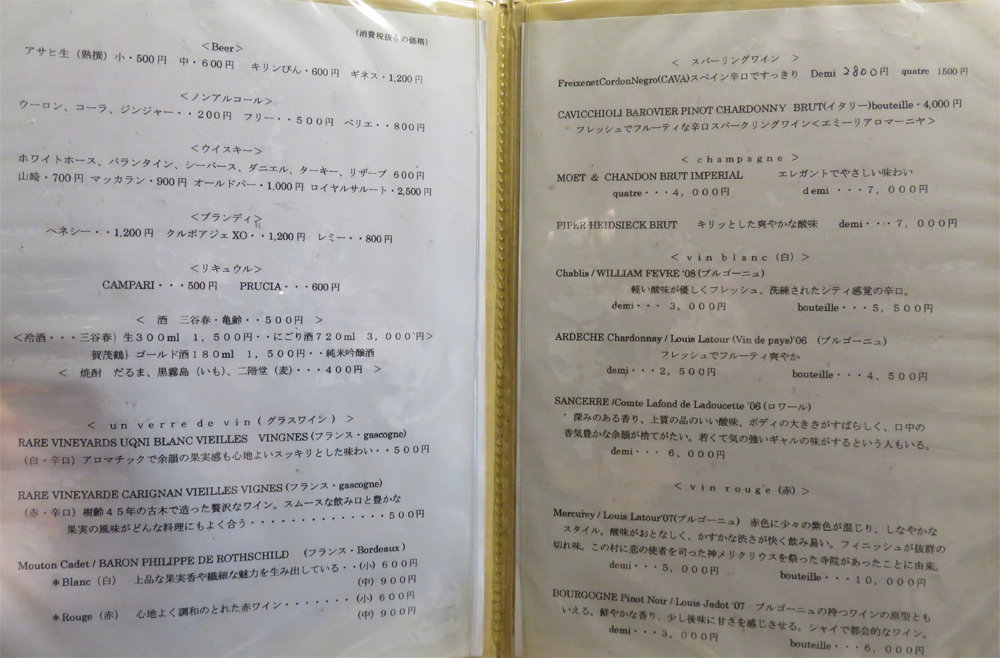 (消費税抜きの価格)
＜Beer＞
アサヒ生（熟撰）小・500円　中・600円　キリンびん・600円　ギネス・1,200円
＜ノンアルコール＞
ウーロン、コーラ、ジンジャー・・200円　フリー・・500円　ペリエ・・800円
＜ウイスキー＞
ホワイトホース、バランタイン、シーバース、ダニエル、ターキー、リザーブ 600円
山崎・700円 マッカラン・900円 オールドパー・1,000円 ロイヤルサルート・2,500円
＜ブランディ＞
ヘネシー・・1,200円　クルボアジェXO・・1,200円　レミー・・800円
＜リキュウル＞
CAMPARI・・・500円　　PRUCIA・・・600円
＜　酒　三谷春・亀齢・・500円　＞
＜冷酒・・・三谷春｝生300ml　1,500円・・にごり酒720ml　3,000円＞
賀茂鶴｝ゴールド酒180ml　1,500円・・純米吟醸酒
＜　焼酎　だるま、黒霧島（いも）、二階堂（麦）・・・400円　＞
＜　un verre de vin（グラスワイン）　＞
RARE VINEYARDS UQNI BLANC VIEILLES　VINGNES (フランス・gascogne)
（白・辛口）アロマチックで余韻の果実感も心地よいスッキリとした味わい・・500円
RARE VINEYARDE CARIGNAN VIEILLES VIGNES (フランス・gascogne)
（赤・辛口）樹齢45年の古木で造った贅沢なワイン。スムースな飲み口と豊かな
果実の風味がどんな料理にもよく合う・・・・・・・・・・・・・・500円
Mouton Cadet / BARON PHILIPPE DE ROTHSCHILD　（フランス・Bordeaux）
＊Blanc（白）　上品な果実香や繊細な魅力を生み出している・・(小) 600円
(中) 900円
＊Rouge（赤）　心地よく調和のとれた赤ワイン・・・・・・・(小) 600円
(中) 900円
＜　スパーリングワイン　＞
FreixenetCordonNegro(CAVA)スペイン辛口ですっきり　Demi 2800円　quatre 1500円
CAVICCHIOLI BAROVIER PINOT CHARDONNY　BRUT(イタリー)bouteille・4,000円
フレッシュでフルーティな辛口スパークリングワイン＜エミーリアロマーニヤ＞
＜　champagne　＞
MOET ＆ CHANDON BRUT IMPERIAL　　　エレガントでやさしい味わい
quatre・・・4,000円　　　　demi ・・・7,000円
PIPER HEIDSIECK BRUT　　キリッとした爽やかな酸味　　demi・・・7,000円
＜ vin blanc（白）＞
Chablis / WILLIAM FEVRE '08 (ブルゴーニュ)
軽い酸味が優しくフレッシュ、洗練されたシティ感覚の辛口。
demi・・・ 3,000円　　　　bouteille・・・5,500円
ARDECHE Chardonnay / Louis Latour (Vin de pays)'06　（ブルゴーニュ）
フレッシュでフルーティ爽やか
demi・・・2,500円　　　　bouteille・・・4,500円
SANCERRE /Comte Lafond de Ladoucette '06 (ロワール)
深みのある香り、上質の品のいい酸味、ボディの大きさがすばらしく、口中の
香気豊かな余韻が捨てがたい。若くて気の強いギャルの味がするという人もいる。
demi・・・ 6,000円
＜　vin rouge（赤）＞
Mercurey / Louis Latour'07(ブルゴーニュ)　赤色に少々の紫色が混じり、しなやかな
スタイル。酸味がおとなしく、かすかな渋さが快く飲み易い。フィニッシュが抜群の
切れ味。この村に恋の使者を司った神メリクリウスを祭った寺院があったことに由来。
demi・・・5,000円　　　　bouteille・・・10,000円
BOURGOGNE Pinot Noir / Louis Jadot '07　ブルゴーニュの持つワインの原型とも
いえる。鮮やかな香り、少し後味に甘さを感じさせる。シャイで都会的なワイン。
demi・・・3,000円　　　　bouteille・・・6,000円